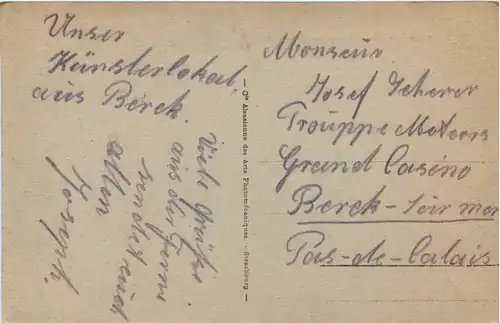 Unser
Künsterlokal,
aus Berck.
Viele Grüße
aus der Ferne
sendet euch
allen
Joseph.
— Cie Alsacienne des Arts Photomécaniques. - Strasbourg —
Monseur
Josef Scherer
Trouppe Meteors
Grand Casino
Berck-Sur mer
Pas-de-Calais